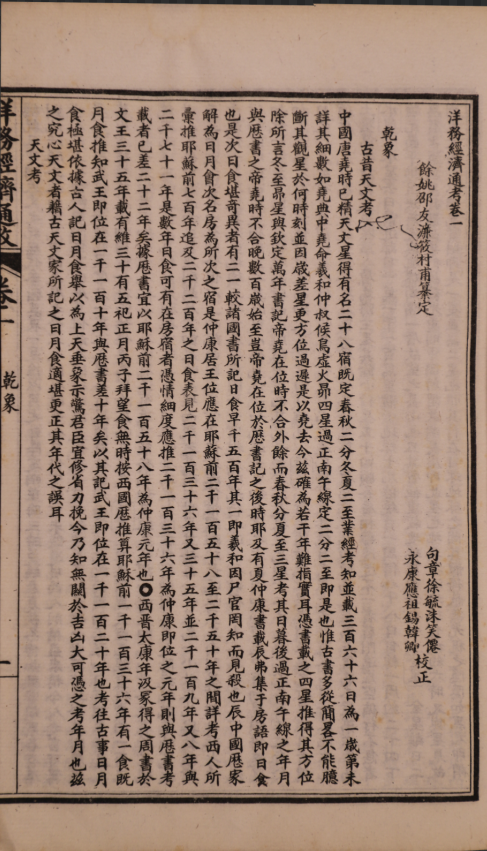 洋務經濟通考卷一
餘姚邵友濂筱村甫纂定
句章徐毓洙笑僊
永康應祖錫韓卿校正
乾象
古昔天文考
中國唐堯時已精天文星得有名二十八宿既定春秋二分冬夏二至業經考知並載三百六十六日為一歲第未
詳其細數如堯典中堯命羲和仲叔候鳥虛火昴四星過正南午線定二分二至即是也惟古書多從簡畧不能臆
斷其觀星於何時刻並因歲差星更方位過遲是以堯去今茲確為若干年難指實耳憑書載之四星推得其方位
除所言冬至昴星與欽定萬年書記帝堯在位時不合外餘而春秋分夏至三星考其日暮後過正南午線之年月
與歷書之帝堯時不合晚數百歲始至豈帝堯在位於歷書記之後時耶及有夏仲康書載辰弗集于房語即日食
也是次日食堪奇異者有二一較諸國書所記日食早千五百年其一即羲和因尸官罔知而見殺也辰中國歷家
解為日月會次名房為所次之宿是仲康居王位應在耶穌前二千一百五十八至二千五十年之間詳考西人所
彙推耶穌前七百年追及二千二百年之日食表見二千一百三十六年又三十五年並二千一百九年又八年與
二千七十一年是數年日食可有在房宿者憑情細度應推二千一百三十六年為仲康即位之元年則與歷書考
載者已差二十二年矣據歷書宜以耶穌前二千一百五十八年為仲康元年也○西晉太康年汲冢得之周書於
文王三十五年載有維三十有五祀正月丙子拜望食無時按西國歷推算耶穌前一千一百三十六年有一食既
月食推知武王即位在一千一百十年與歷書差十年矣以其記武王即位在一千一百二十年也考往古事日月
食極堪依據古人記日月食舉以為上天垂象示警君臣宜修省力挽今乃知無關於吉凶大可憑之考年月也茲
之究心天文者藉古天文家所記之日月食適堪更正其年代之誤耳
天文考
洋務經濟通考
卷一
乾象
一